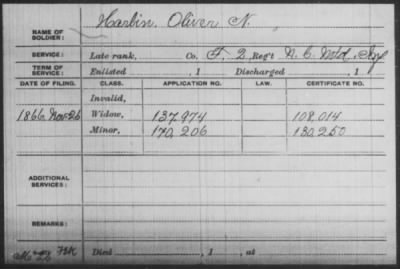 Harbin, Oliver N.
NAME OF SOLDIER:
SERVICE: Late rank, Co. F, 2 Reg't N. C. Mtd. Inf
TERM OF SERVICE: Enlisted , 1 Discharged , 1
DATE OF FILING. CLASS. APPLICATION NO. LAW. CERTIFICATE NO.
Invalid,
1866 Nov 26 Widow, 137,974 108,014
Minor, 170,206 130,250
ADDITIONAL SERVICES:
REMARKS:
Died , 1 , at